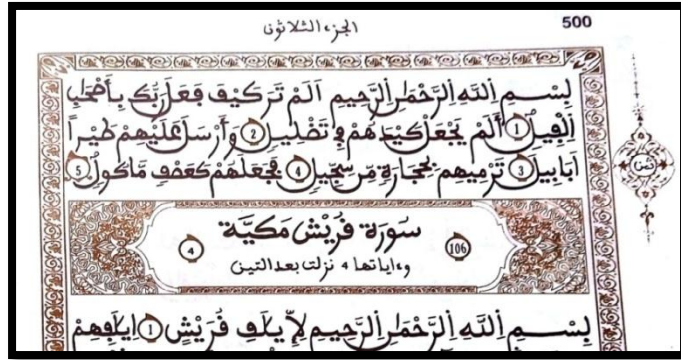 الجزء الثلاثون
500
بِسْمِ اِللَّهِ اِلرَّحْمَٰنِ اِلرَّحِيمِ أَلَمْ تَرَ كَيْفَ فَعَلَ رَبُّكَ بِأَصْحَٰبِ
اِلْفِيلِ 1 أَلَمْ يَجْعَلْ كَيْدَهُمْ فِے تَضْلِيلٍ 2 وَأَرْسَلَ عَلَيْهِمْ طَيْراً
اَبَابِيلَ 3 تَرْمِيهِم بِحِجَارَةٍ مِّن سِجِّيلٍ 4 فَجَعَلَهُمْ كَعَصْفٍ مَّاكُولٍ 5
ثمن
106 سُورَة قُرَيْش مَكِيَّة 4
وءاياتها 4 نزلت بعد التين
بِسْمِ اِللَّهِ اِلرَّحْمَٰنِ اِلرَّحِيمِ لِإِيلَٰفِ قُرَيْشٍ 1 اِۦلَٰفِهِمْ